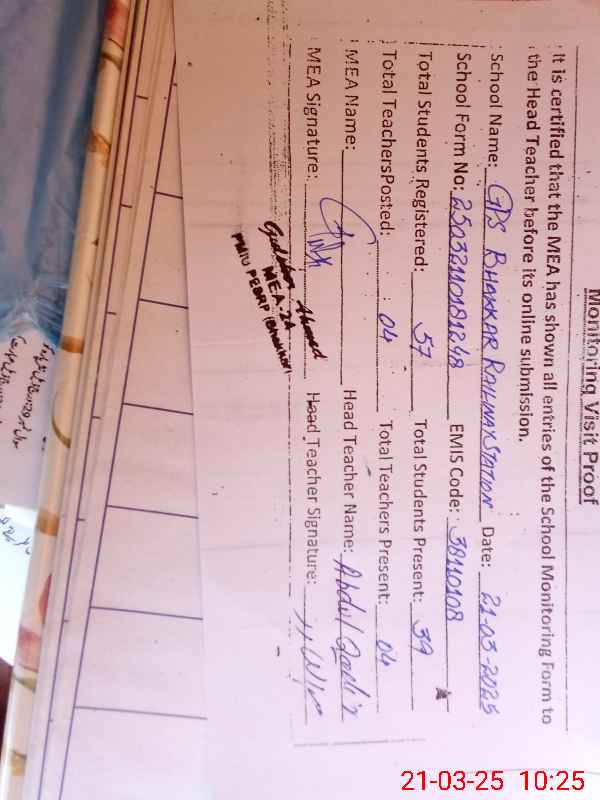 Monitoring Visit Proof
It is certified that the MEA has shown all entries of the School Monitoring Form to
the Head Teacher before its online submission.
School Name: GPS BHAKKAR RAILWAY STATION Date: 21-03-2025
School Form No: 25032110181248 EMIS Code: 38110108
Total Students Registered: 57 Total Students Present: 39
Total TeachersPosted: 04 Total Teachers Present: 04
MEA Name: Head Teacher Name: Abdul
MEA Signature: Head Teacher Signature:
Ahmed
MEA-2A
PMIU PESRP (BHAKKAR)
21-03-25 10:25